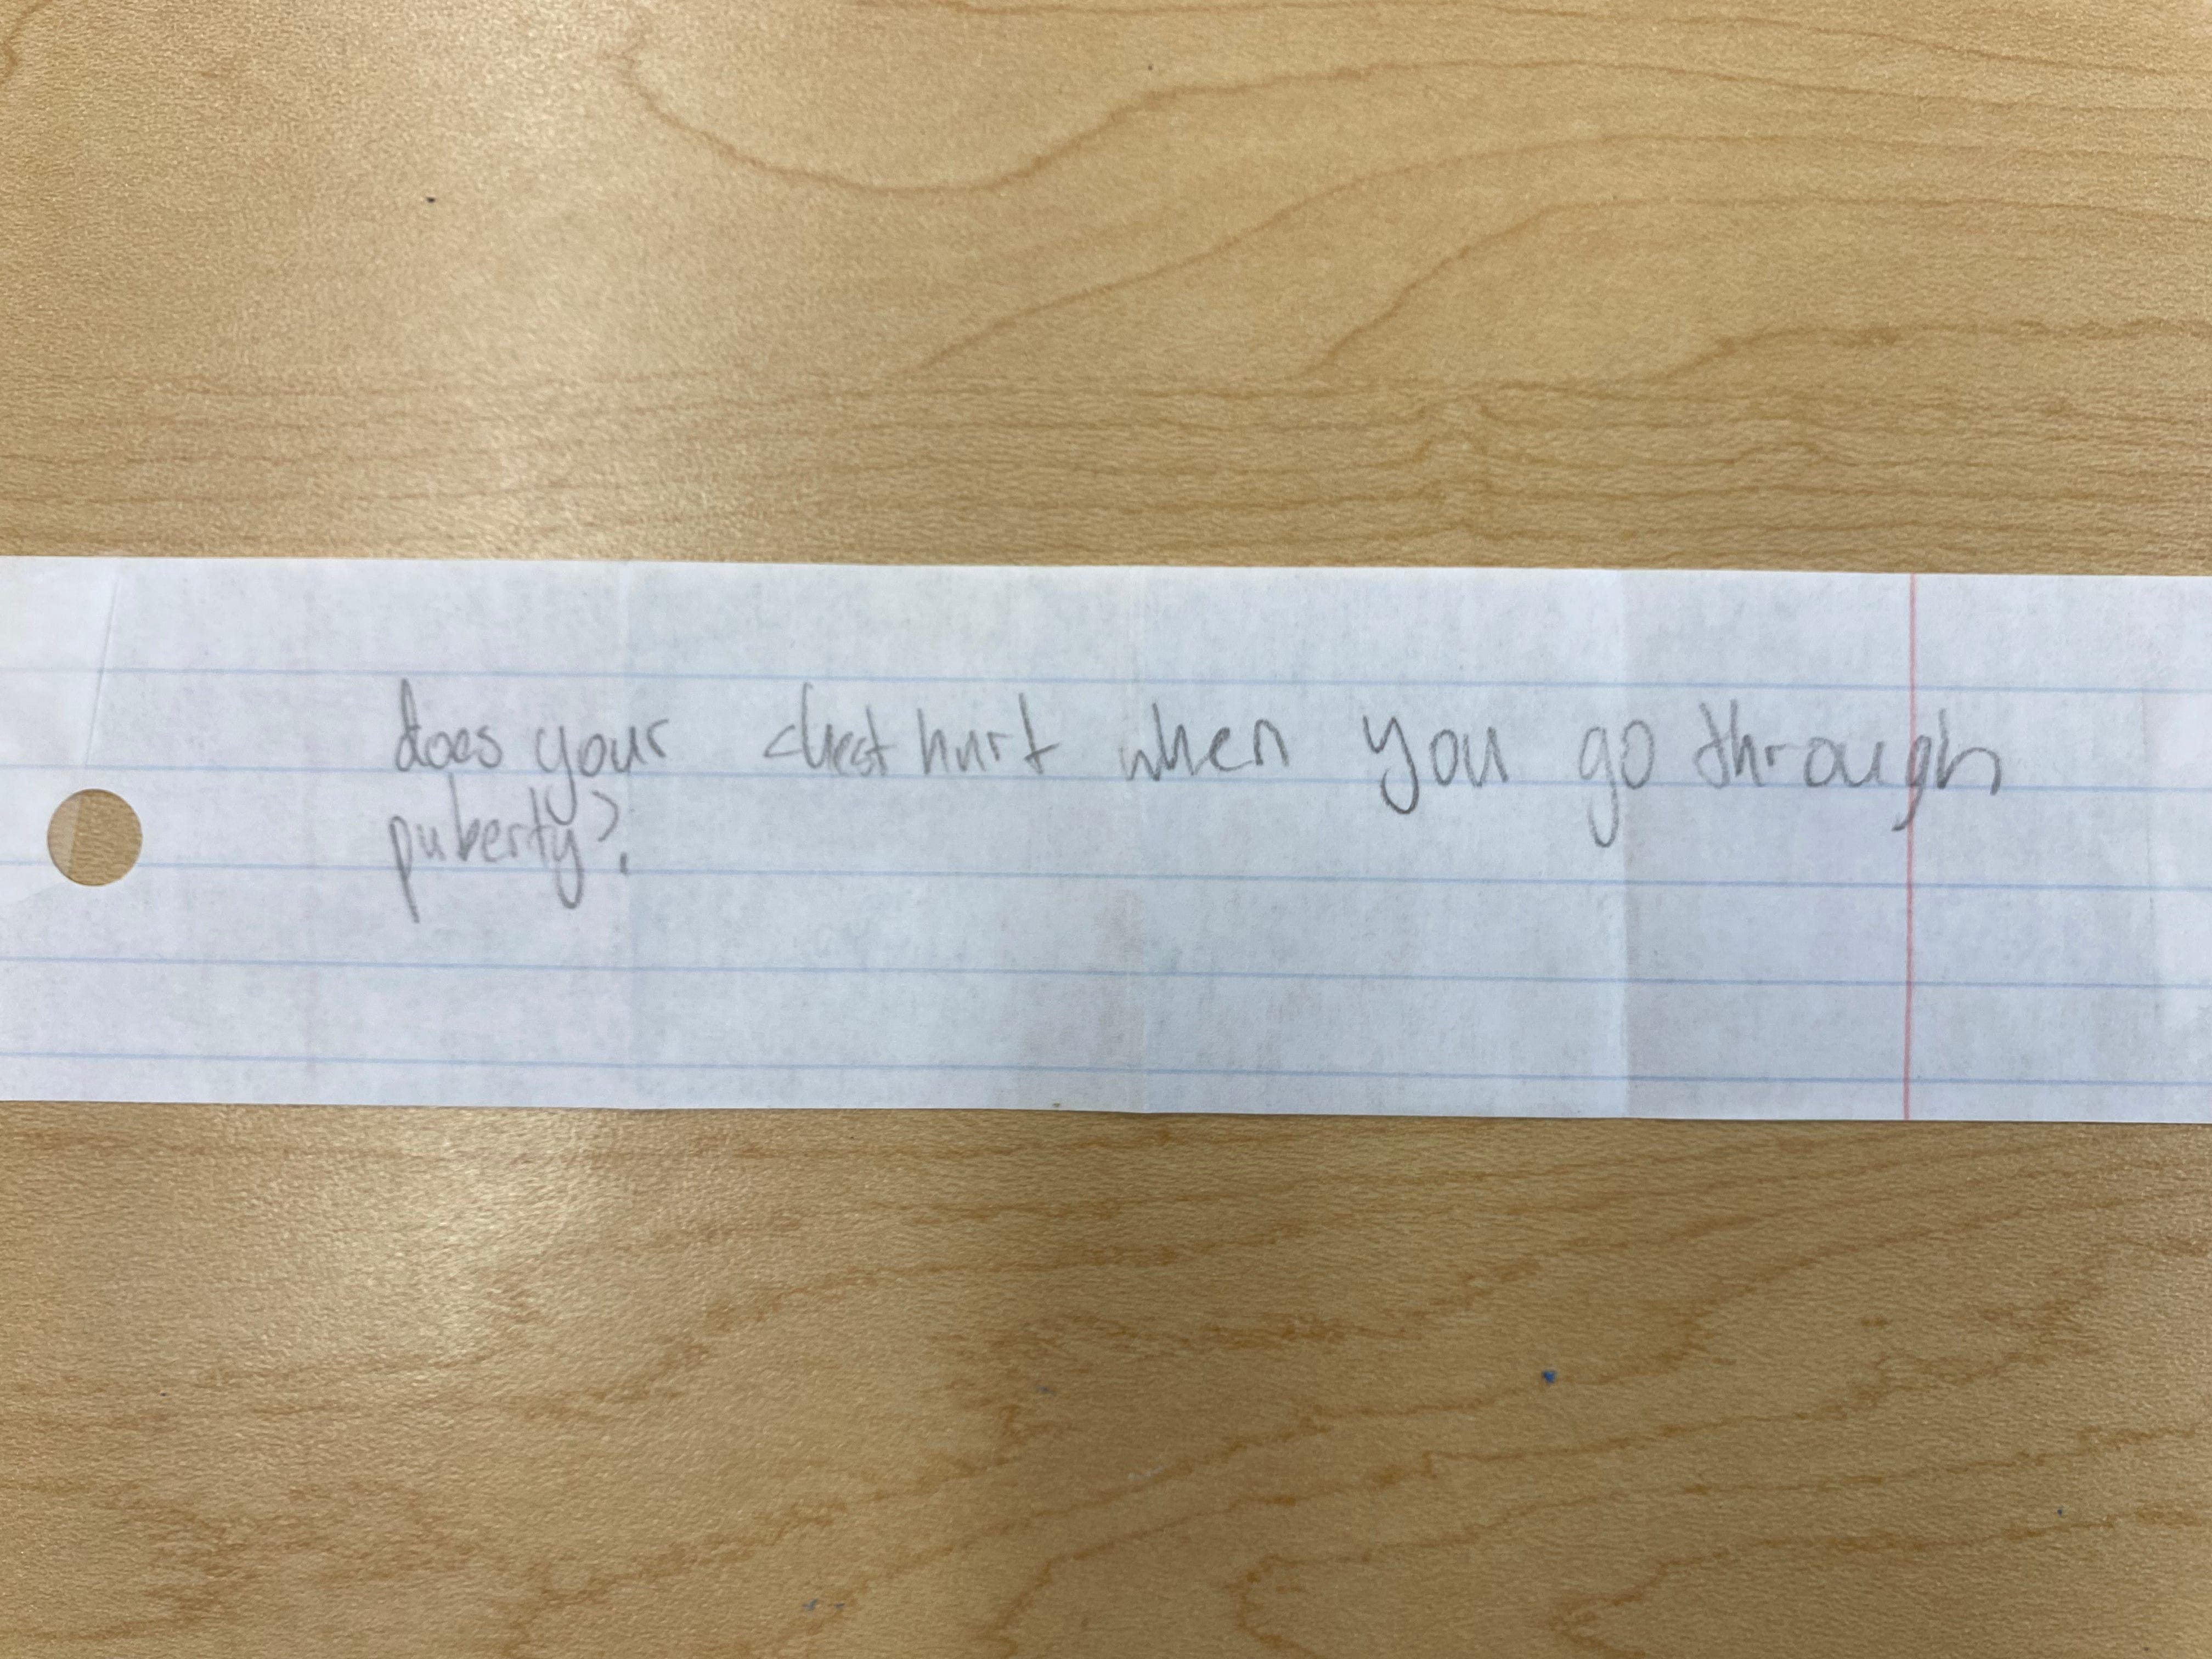 does your chest hurt when you go through
puberty?